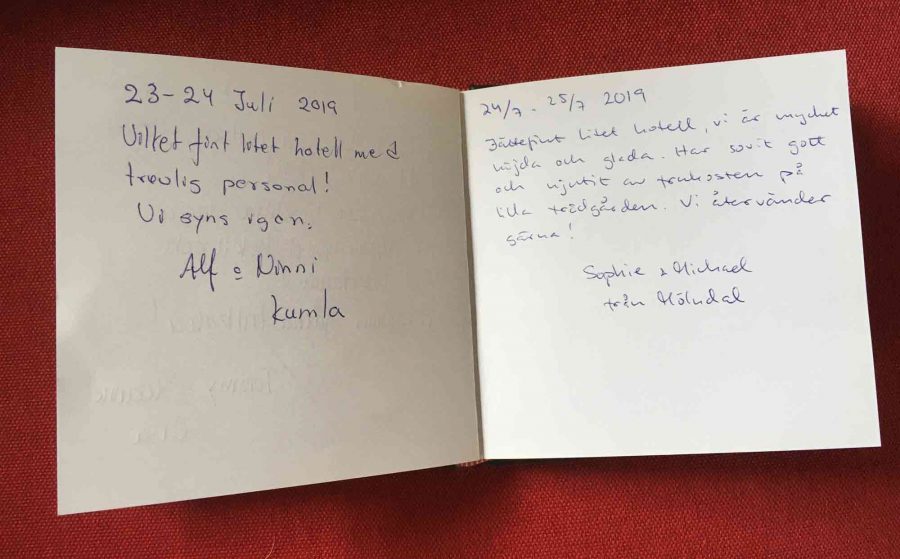 23-24 Juli 2019
Vilket fint litet hotell med
trevlig personal!
Vi syns igen.
Alf o Ninni
Kumla
24/7 - 25/7 2019
Jättefint litet hotell, vi är mycket
nöjda och glada. Har sovit gott
och njutit av frukosten på
lilla trädgården. Vi återvänder
gärna!
Sophie & Michael
från Mölndal